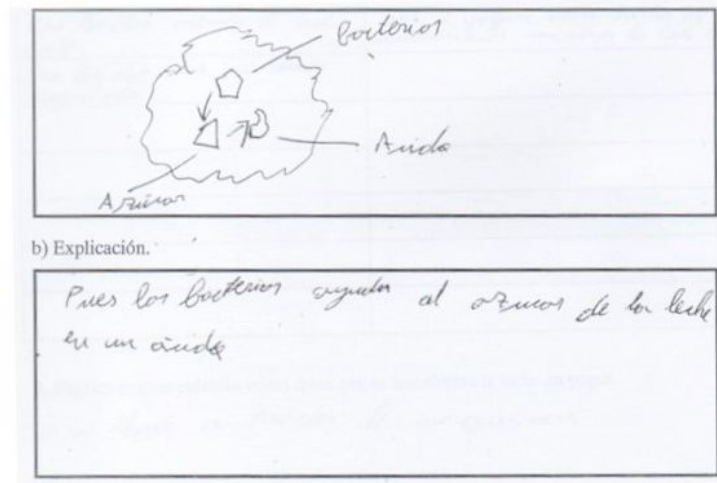 bacterias
Acido
Azúcar
b) Explicación.
Pues las bacterias ayudan al azucar de la leche
en un ácido